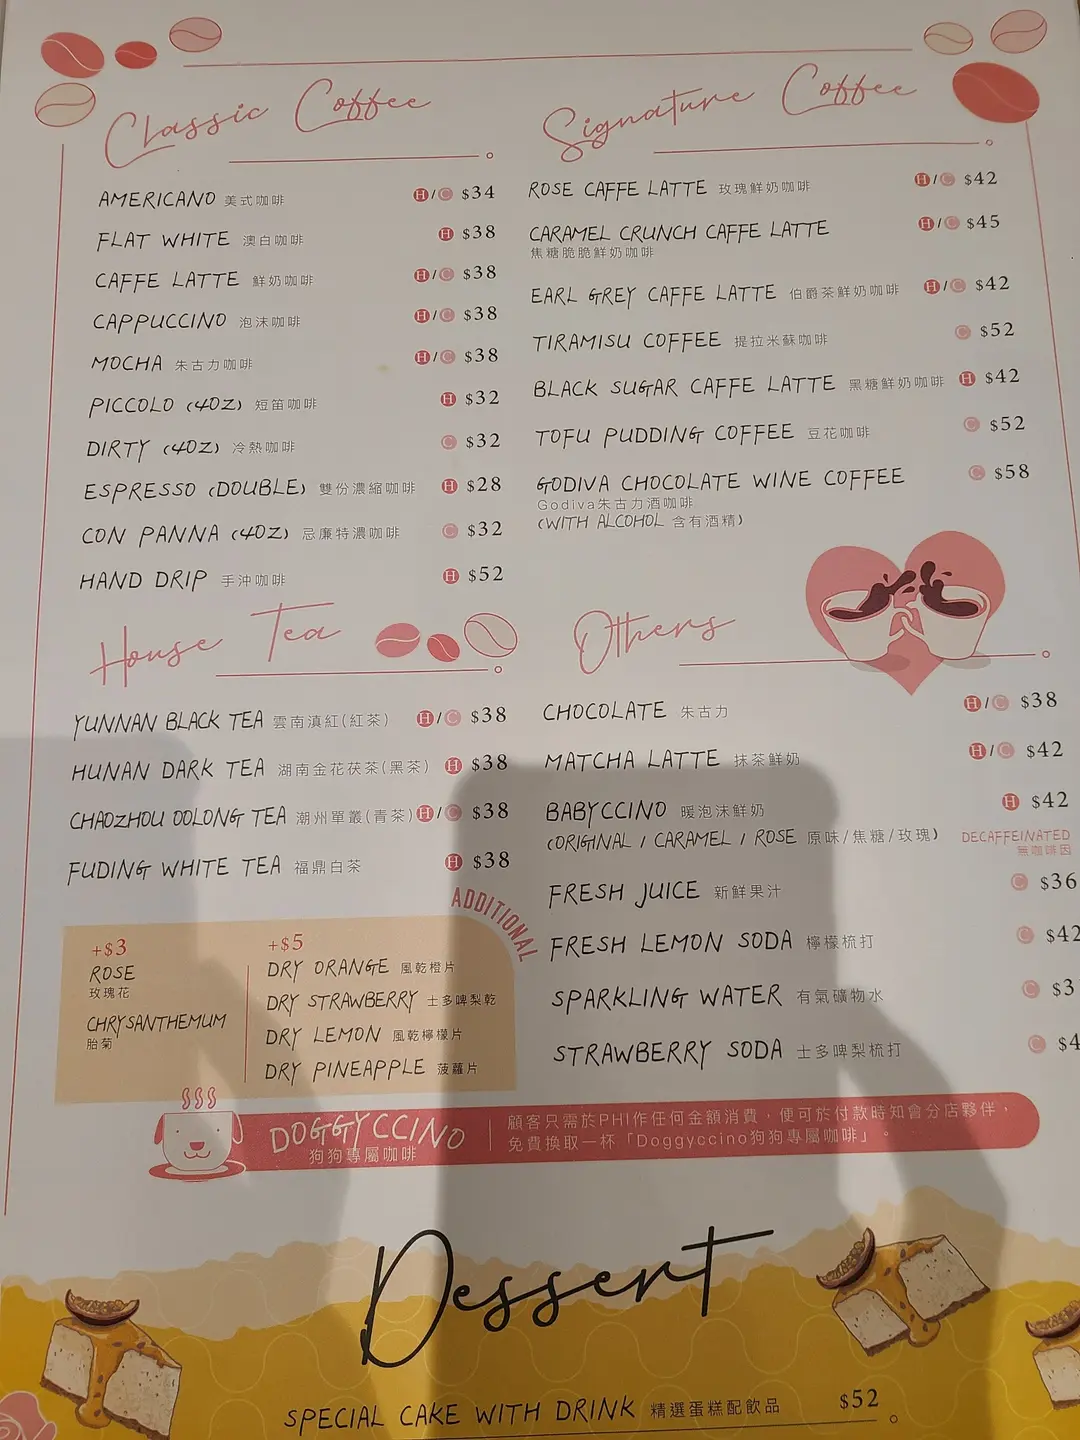 Classic Coffee
AMERICANO 美式咖啡 H/C $34
FLAT WHITE 澳白咖啡 H $38
CAFFE LATTE 鮮奶咖啡 H/C $38
CAPPUCCINO 泡沫咖啡 H/C $38
MOCHA 朱古力咖啡 H/C $38
PICCOLO (4OZ) 短笛咖啡 H $32
DIRTY (4OZ) 冷熱咖啡 C $32
ESPRESSO (DOUBLE) 雙份濃縮咖啡 H $28
CON PANNA (4OZ) 忌廉特濃咖啡 C $32
HAND DRIP 手沖咖啡 H $52
Signature Coffee
ROSE CAFFE LATTE 玫瑰鮮奶咖啡 H/C $42
CARAMEL CRUNCH CAFFE LATTE H/C $45
焦糖脆脆鮮奶咖啡
EARL GREY CAFFE LATTE 伯爵茶鮮奶咖啡 H/C $42
TIRAMISU COFFEE 提拉米蘇咖啡 C $52
BLACK SUGAR CAFFE LATTE 黑糖鮮奶咖啡 H $42
TOFU PUDDING COFFEE 豆花咖啡 C $52
GODIVA CHOCOLATE WINE COFFEE C $58
Godiva朱古力酒咖啡
(WITH ALCOHOL 含有酒精)
House Tea
YUNNAN BLACK TEA 雲南滇紅(紅茶) H/C $38
HUNAN DARK TEA 湖南金花茯茶(黑茶) H $38
CHAOZHOU OOLONG TEA 潮州單叢(青茶) H/C $38
FUDING WHITE TEA 福鼎白茶 H $38
ADDITIONAL
+$3
ROSE
玫瑰花
CHRYSANTHEMUM
胎菊
+$5
DRY ORANGE 風乾橙片
DRY STRAWBERRY 士多啤梨乾
DRY LEMON 風乾檸檬片
DRY PINEAPPLE 菠蘿片
Others
CHOCOLATE 朱古力 H/C $38
MATCHA LATTE 抹茶鮮奶 H/C $42
BABYCCINO 暖泡沫鮮奶 H $42
(ORIGINAL / CARAMEL / ROSE 原味/焦糖/玫瑰) DECAFFEINATED
無咖啡因
FRESH JUICE 新鮮果汁 C $36
FRESH LEMON SODA 檸檬梳打 C $42
SPARKLING WATER 有氣礦物水 C $3
STRAWBERRY SODA 士多啤梨梳打 C $4
DOGGYCCINO
狗狗專屬咖啡
顧客只需於PHI作任何金額消費，便可於付款時知會分店夥伴，
免費換取一杯「Doggyccino狗狗專屬咖啡」。
Dessert
SPECIAL CAKE WITH DRINK 精選蛋糕配飲品 $52